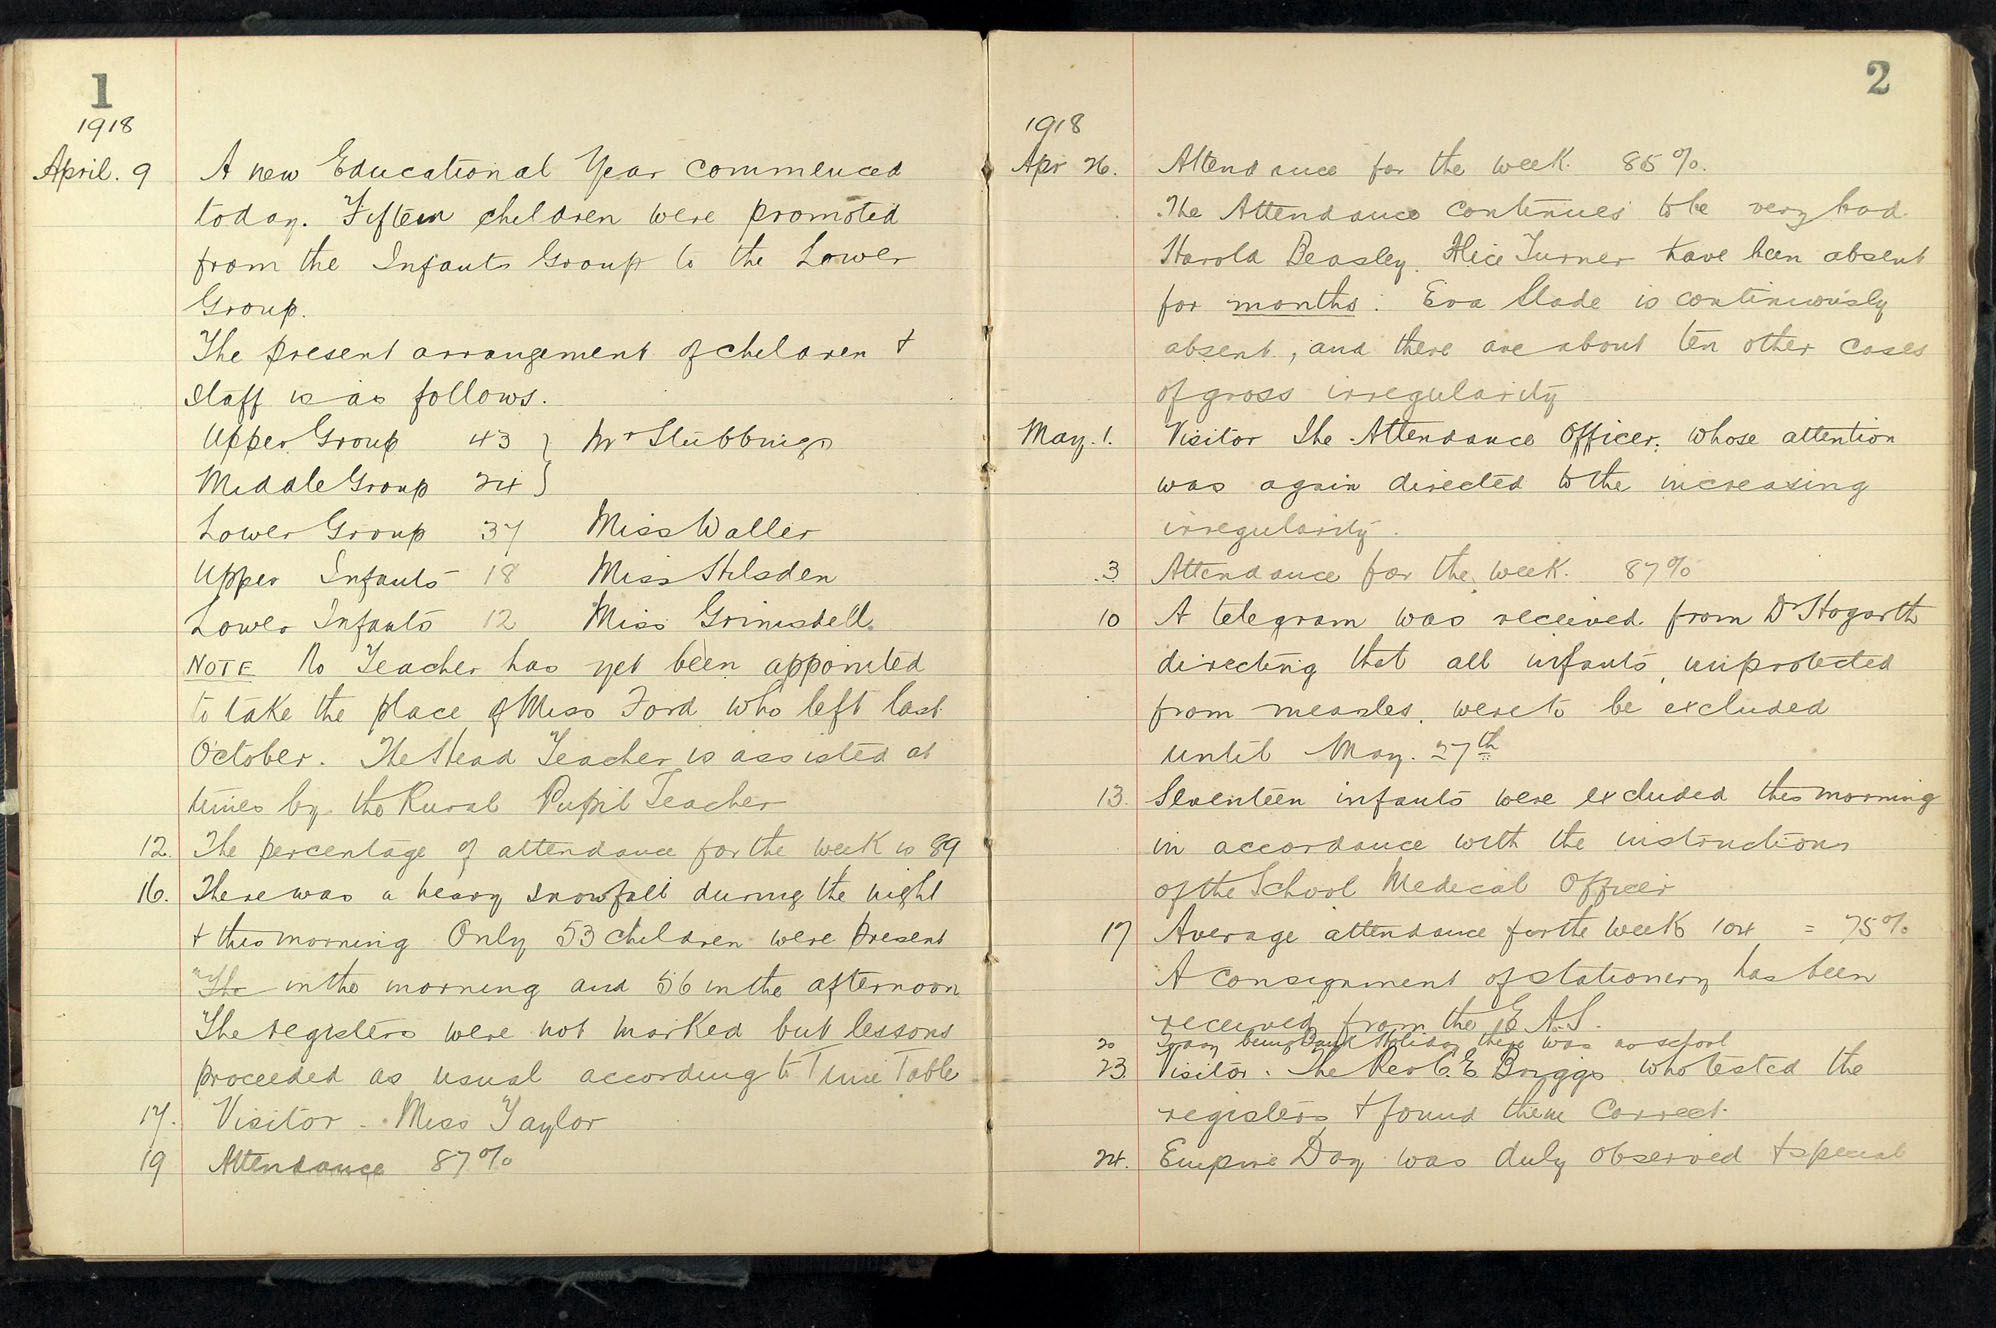 1
1918
April. 9 A new Educational Year commenced
today. Fifteen children were promoted
from the Infants Group to the Lower
Group.
The present arrangement of children +
staff is as follows.
Upper Group 43 } Mr Stubbings
Middle Group 24 }
Lower Group 37 Miss Waller
Upper Infants 18 Miss Hilsden
Lower Infants 12 Miss Grimsdell
NOTE No Teacher has yet been appointed
to take the place of Miss Ford who left last
October. The Head Teacher is assisted at
times by the Rural Pupil Teacher
12. The percentage of attendance for the week is 89
16. There was a heavy snowfall during the night
+ this morning Only 53 children were present
The in the morning and 56 in the afternoon
The registers were not marked but lessons
proceeded as usual according to Time Table
17. Visitor - Miss Taylor
19 Attendance 87%
2
1918
Apr 26. Attendance for the week. 85%.
The Attendance continues to be very bad.
Harold Beasley. Alice Turner have been absent
for months. Eva Slade is continuously
absent, and there are about ten other cases
of gross irregularity
May. 1. Visitor The Attendance Officer, whose attention
was again directed to the increasing
irregularity.
3 Attendance for the week. 87%
10 A telegram was received from Dr Hogarth
directing that all infants, unprotected
from measles, were to be excluded
until May. 27th
13. Seventeen infants were excluded this morning
in accordance with the instructions
of the School Medical Officer
17 Average attendance for the week 104 = 75%
A consignment of stationery has been
received from the E.A.S.
20 Today being Bank Holiday there was no school
23. Visitor. The Rev C. E. Briggs who tested the
registers + found them correct.
24. Empire Day was duly observed + special